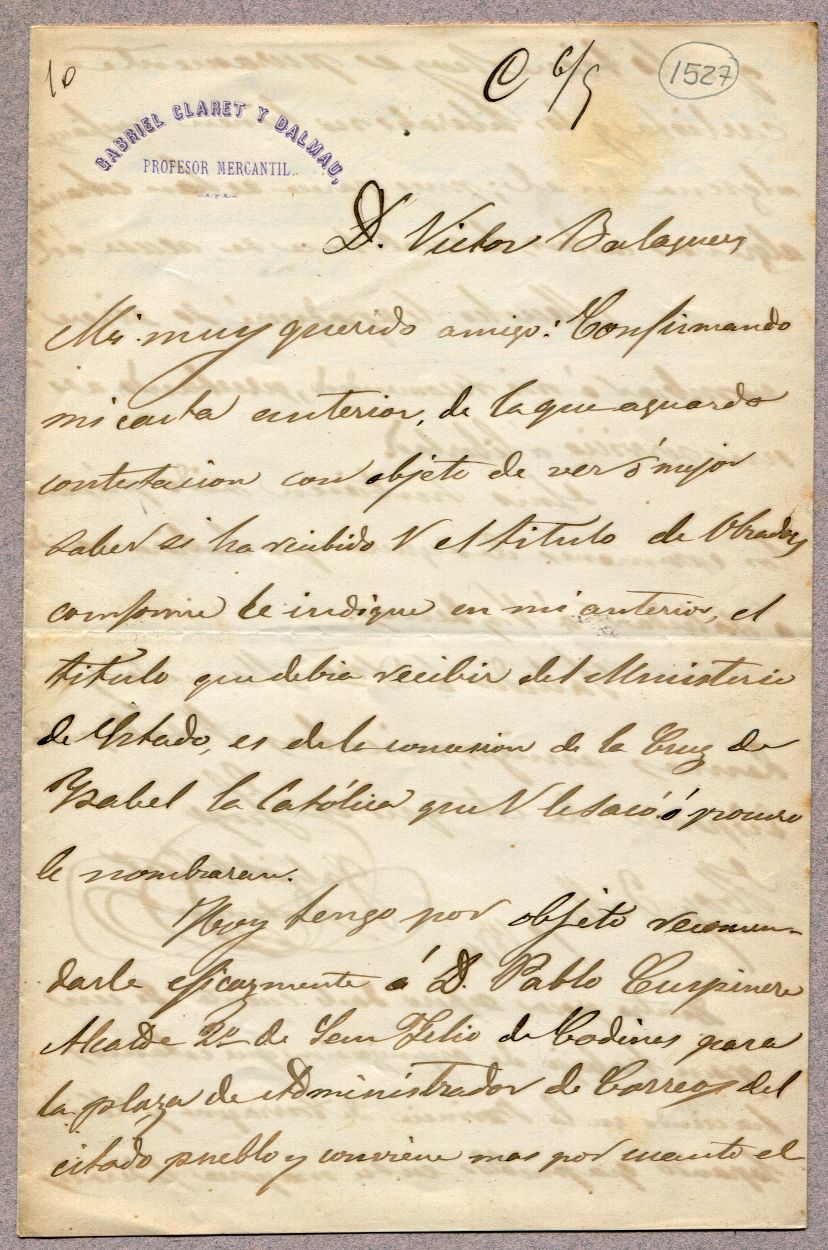 10
C 6/5
1527
GABRIEL CLARET Y DALMAU,
PROFESOR MERCANTIL.
D. Victor Balaguer
Mi muy querido amigo: Confirmando
mi carta anterior, de la que aguardo
contestacion con objeto de ver ó mejor
saber si ha recibido V el titulo de Obradors
conforme le indique en mi anterior, el
titulo que debia recibir del Ministerio
de Estado, es de la concesion de la Cruz de
Ysabel la Católica que V le sacó ó procuro
le nombraran.
Hoy tengo por objeto recomen-
darle eficazmente á D. Pablo Cuspinera
Alcalde 2º de San Felio de Codines para
la plaza de Administrador de Correos del
citado pueblo y conviene mas por cuanto el